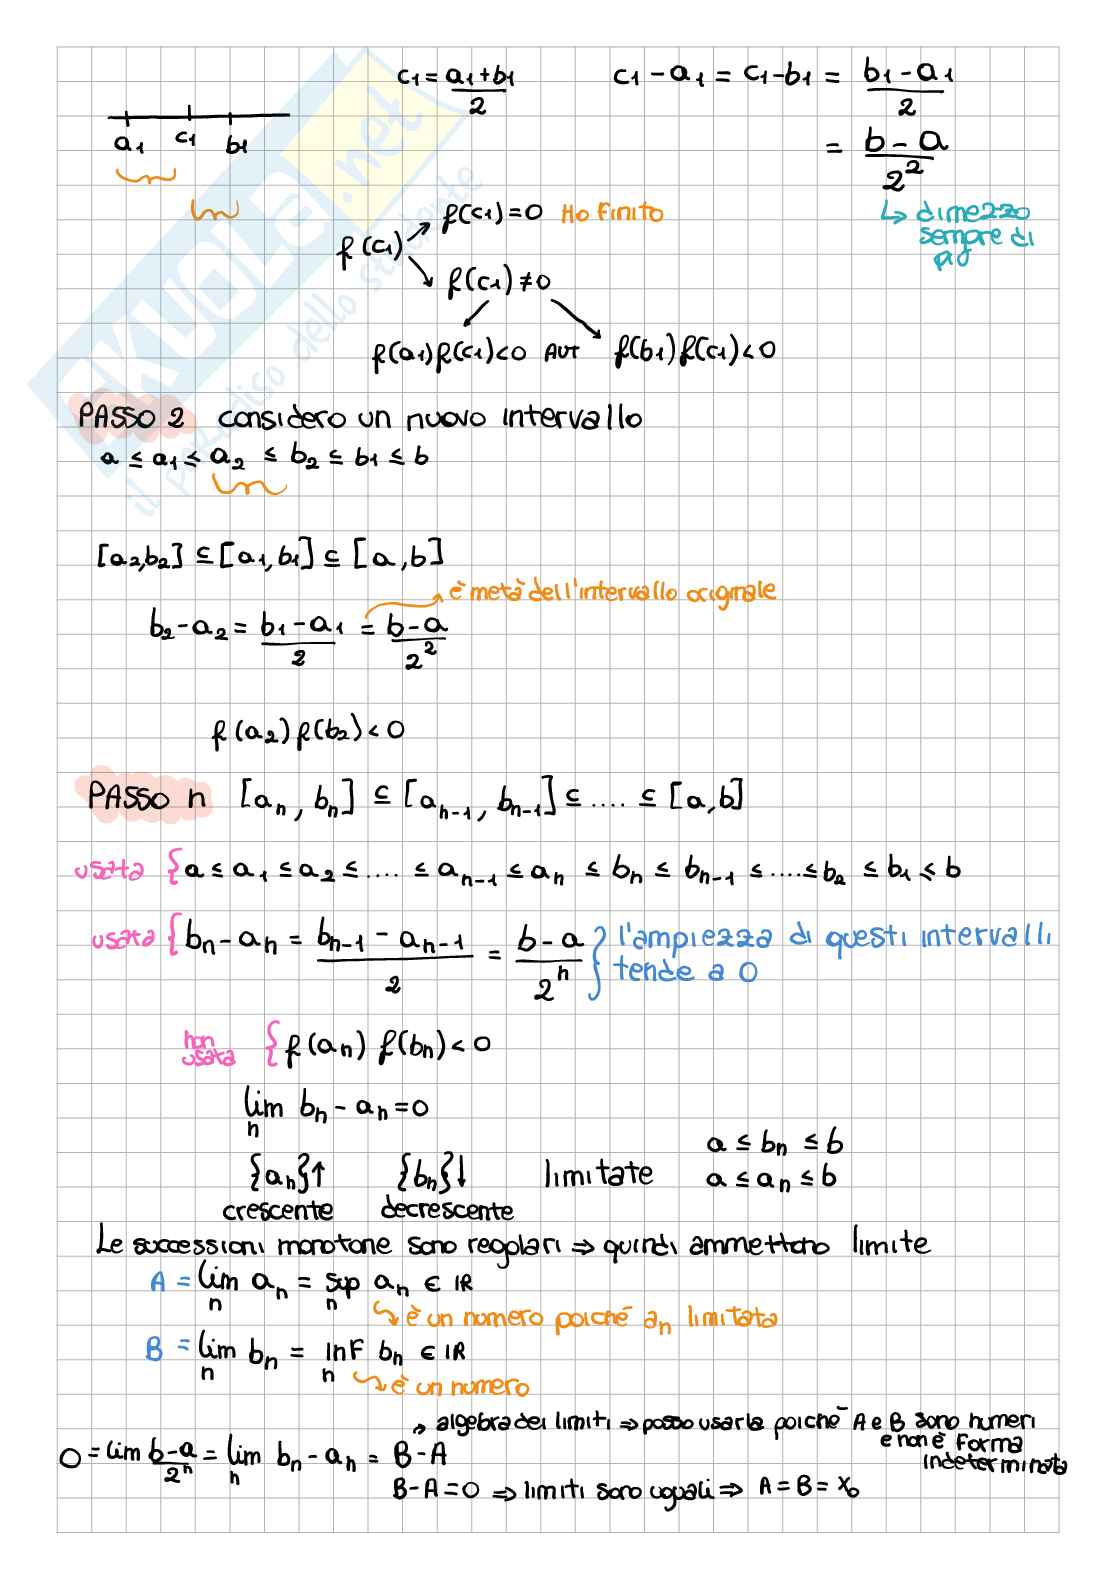 c1 = a1+b1 / 2    c1 - a1 = c1 - b1 = b1 - a1 / 2
a1 c1 b1
= b - a / 2²
↳ dimezzo
sempre di
più
f(c1) = 0 Ho finito
f(c1)
f(c1) ≠ 0
f(a1) f(c1) < 0 AUT f(b1) f(c1) < 0
PASSO 2 considero un nuovo intervallo
a ≤ a1 ≤ a2 ≤ b2 ≤ b1 ≤ b
[a2, b2] ⊆ [a1, b1] ⊆ [a, b]
è metà dell'intervallo originale
b2 - a2 = b1 - a1 / 2 = b - a / 2²
f(a2) f(b2) < 0
PASSO n [an, bn] ⊆ [an-1, bn-1] ⊆ .... ⊆ [a, b]
usata { a ≤ a1 ≤ a2 ≤ .... ≤ an-1 ≤ an ≤ bn ≤ bn-1 ≤ .... ≤ b2 ≤ b1 ≤ b
usata { bn - an = bn-1 - an-1 / 2 = b - a / 2ⁿ } l'ampiezza di questi intervalli
tende a 0
non usata { f(an) f(bn) < 0
lim n bn - an = 0
{an}↑ {bn}↓ limitate a ≤ bn ≤ b
a ≤ an ≤ b
crescente decrescente
Le successioni monotone sono regolari ⇒ quindi ammettono limite
A = lim n an = sup n an ∈ IR
↳ è un numero poiché an limitata
B = lim n bn = inF n bn ∈ IR
↳ è un numero
→ algebra dei limiti ⇒ posso usarla poiché A e B sono numeri
e non è Forma
indeterminata
0 = lim b-a / 2ⁿ = lim n bn - an = B - A
B - A = 0 ⇒ limiti sono uguali ⇒ A = B = x0
SKUOLA.net
il paradiso dello studente